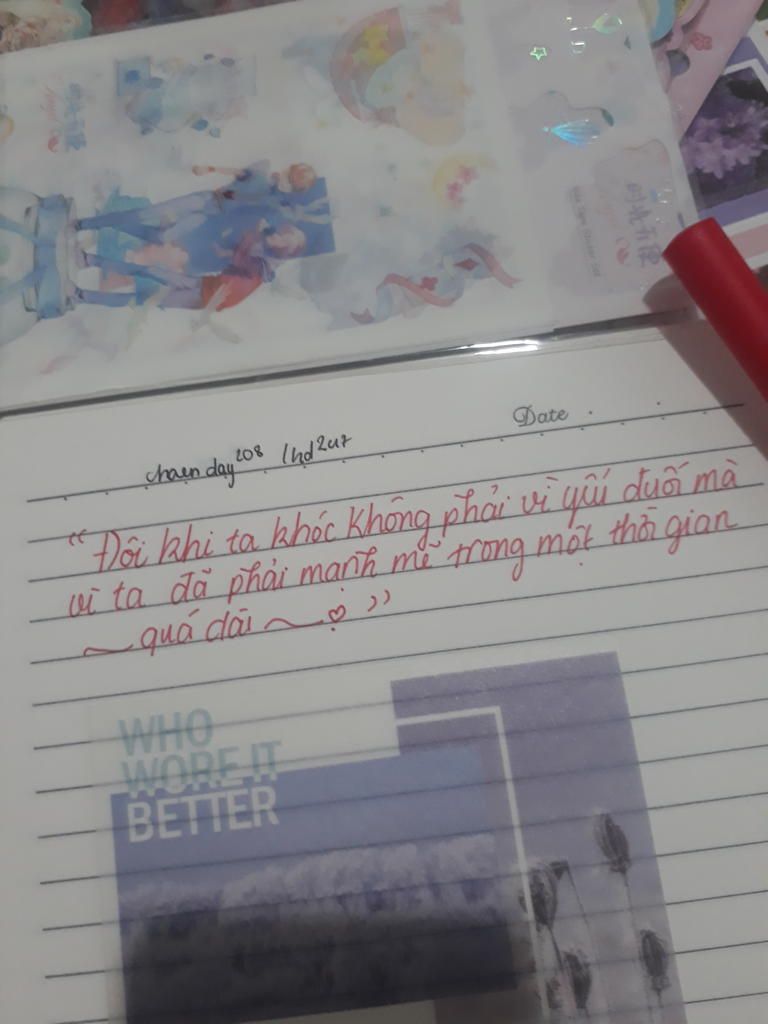 Date
“Đôi khi ta khóc không phải vì yếu đuối mà
vì ta đã phải mạnh mẽ trong một thời gian
quá dài ”
WHO
WORE IT
BETTER